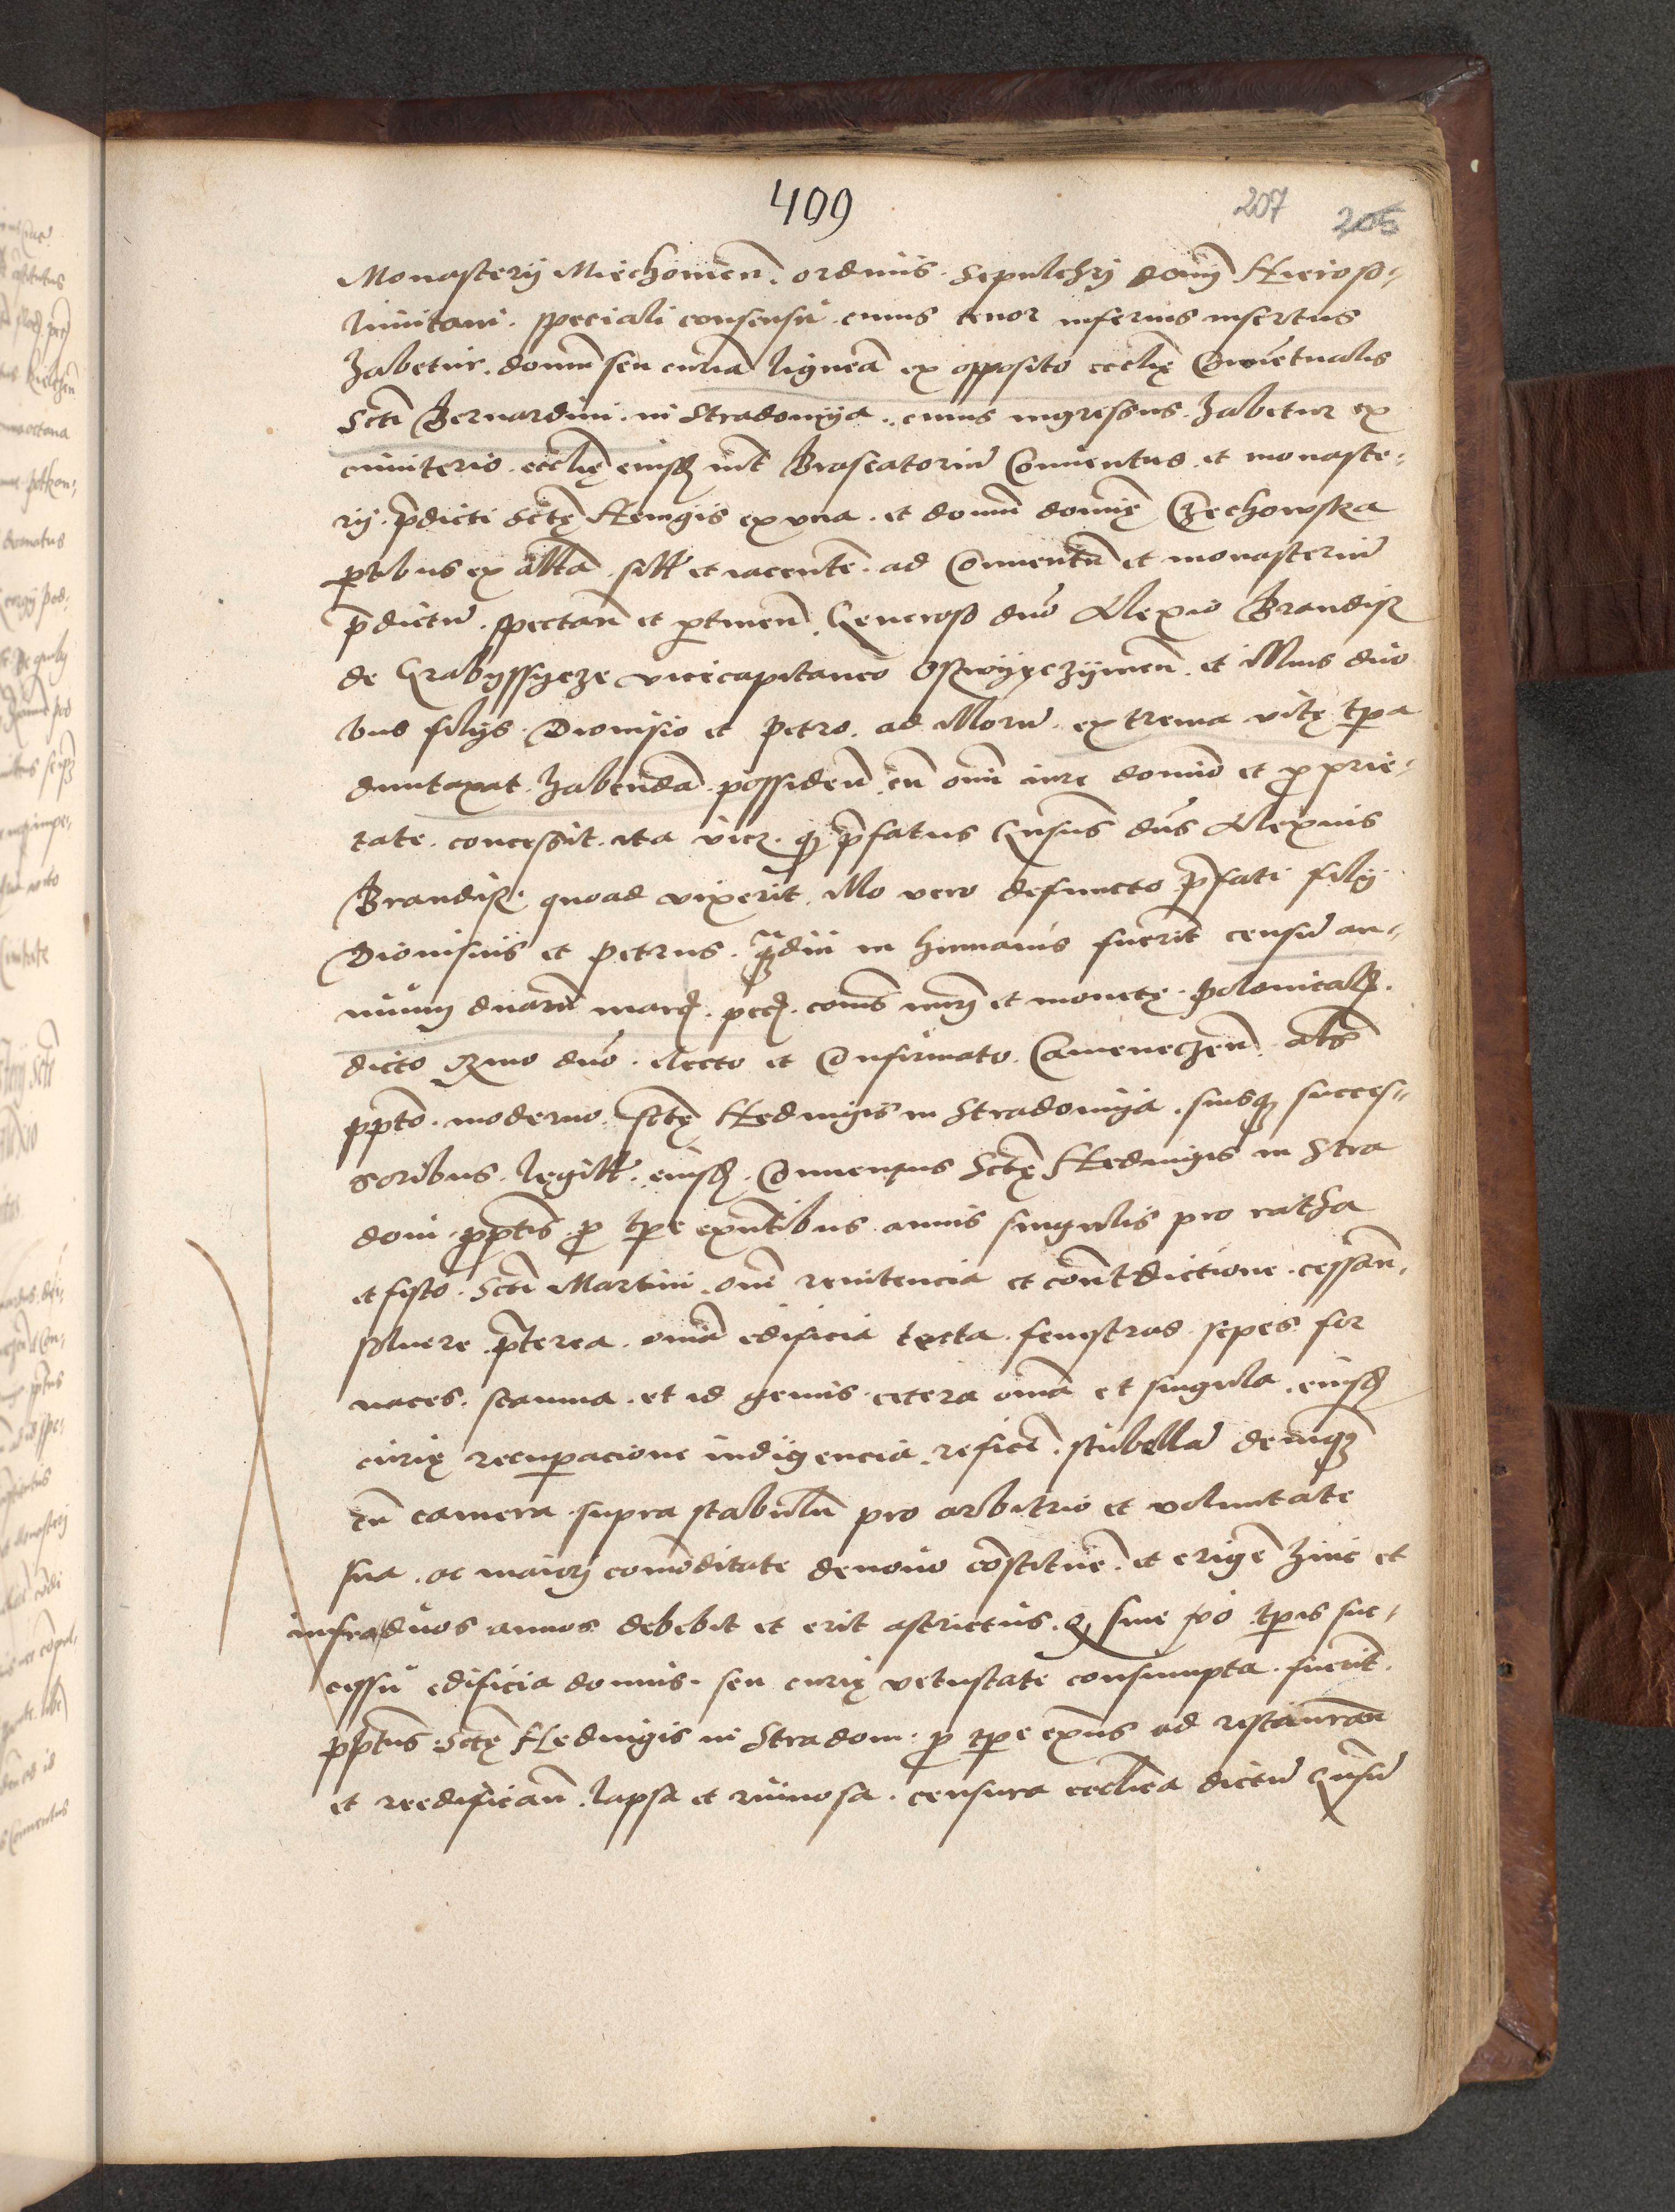 409
207 205
Monasterij Miechouien. ordinis Sepulchrj domj Hieroso-
limitani. speciali consensu. cuius tenor inferius insertus
habetur. domu seu curia lignea ex opposito ecclie Conuetualis
Scti Bernardini. in Stradomya. cuius ingressus habetur ex
cimiterio ecclie eiusd int Braseatoriu Conuentus et monaste-
rij. pdicti Scte Hewigis ex vna. et domu domie Czechowska
ptibus ex altia. sitt et iacente. ad Conuentu et monasteriu
pdictu. spectan et ptinen. Generoso dno Alexio Brandis
de Grabyssycze vicecapitaneo Osswyeczymen. et illius duo
bus filijs. Dionisio et Petro. ad illoru extrema vite tpa
duntaxat. habenda possiden. cu omi iure dominio et proprie-
tate. concessit. ita vicz. q prefatus Gnsus dns Alexius
Brandis. quoad vixerit. illo vero defuncto prefati filij
Dionisius et Petrus. qdiu in humanis fuerit censu an-
nuum duaru marc. pec. comis nurj et monete. polonicalis.
dicto Rzmo dno. electo et Confirmato. Cameneczen. abs
ppto. moderno. Scte Hedwigis in Stradomya. suisq succes-
soribus. legitt. eiusd. Conuentus Scte Hedwigis in Stra
dom. pptis p tpe exntibus annis singulis pro ratha
et festo. Scti Martini. omi renitencia et contdictione. cessan.
soluere pterea. omia edificia tecta. fenestras sepes for
naces. scamna. et id genus. cetera omia et singula. eiusd
curie recupacione indigencia. refice. stubella deniqz
cu camera supra stabulu pro arbitrio et voluntate
sua. ac maiorj comoditate denouo constitue. et erige hinc et
infra duos annos debebit et erit astrictus. Q sine po tpis suc-
cessu edificia domus. seu curie vetustate consumpta. fuerit.
pptus. Scte Hedwigis in Stradom. p tpe exns ad restauran
et reedifican. lapsa et ruinosa. censura ecclica dictu Gnsu